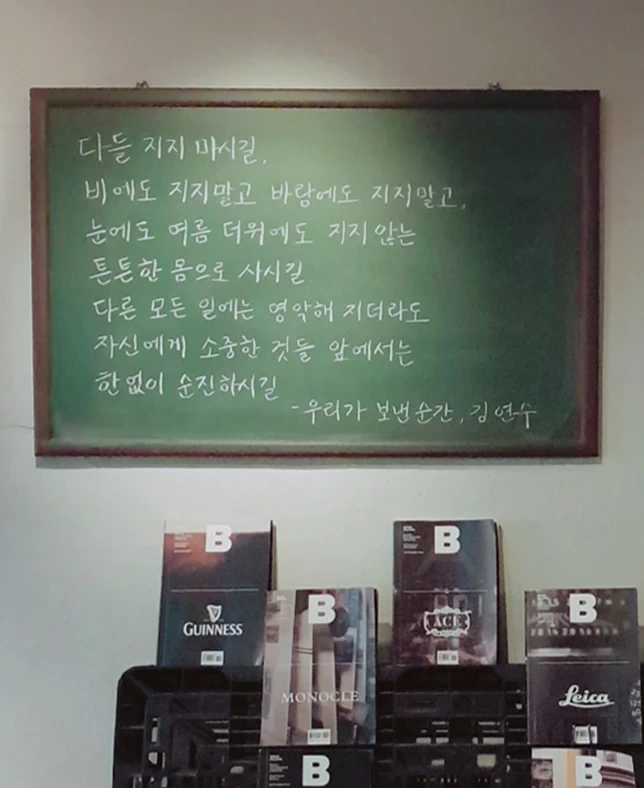 다들 지지 마시길,
비에도 지지말고 바람에도 지지말고,
눈에도 여름 더위에도 지지 않는
튼튼한 몸으로 사시길
다른 모든 일에는 영악해 지더라도
자신에게 소중한 것들 앞에서는
한없이 순진하시길
-우리가 보낸순간, 김연수
B
GUINNESS
B
MONOCLE
B
ACE
B
Leica
B
B